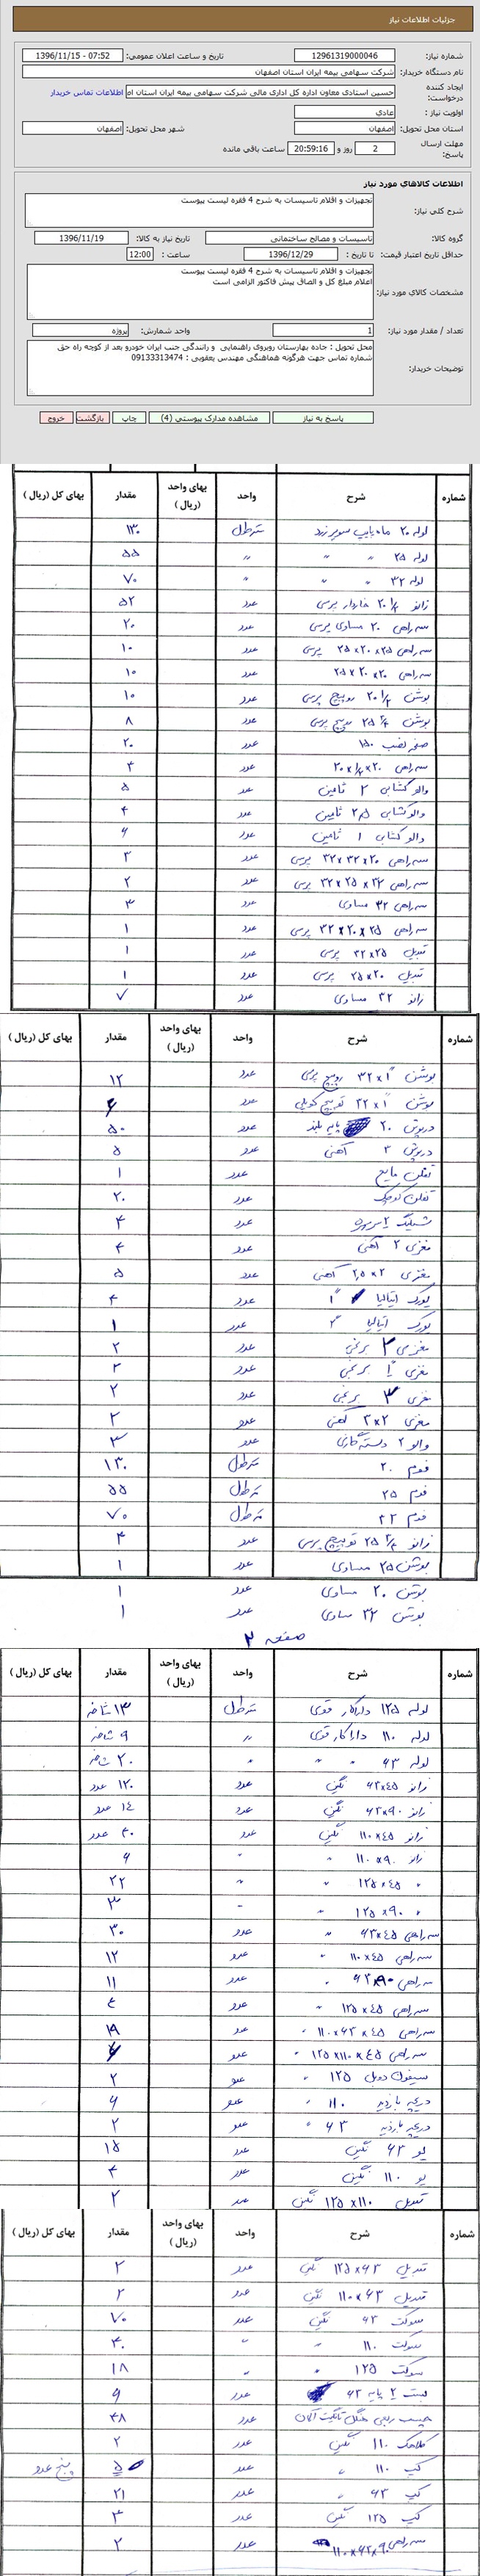 جزئیات اطلاعات نیاز
شماره نیاز: 12961319000046 تاریخ و ساعت اعلان عمومی: 1396/11/15 - 07:52
نام دستگاه خریدار: شرکت سهامی بیمه ایران استان اصفهان
ایجاد کننده درخواست: حسین استادی معاون اداره کل اداری مالی شرکت سهامی بیمه ایران استان اص اطلاعات تماس خریدار
اولویت نیاز : عادی
استان محل تحویل: اصفهان شهر محل تحویل: اصفهان
مهلت ارسال پاسخ: 2 روز و 20:59:16 ساعت باقی مانده
اطلاعات کالاهای مورد نیاز
شرح کلی نیاز: تجهیزات و اقلام تاسیسات به شرح 4 فقره لیست پیوست
گروه کالا: تاسیسات و مصالح ساختمانی تاریخ نیاز به کالا: 1396/11/19
حداقل تاریخ اعتبار قیمت: تا تاریخ : 1396/12/29 ساعت : 12:00
مشخصات کالای مورد نیاز: تجهیزات و اقلام تاسیسات به شرح 4 فقره لیست پیوست
اعلام مبلغ کل و الصاق پیش فاکتور الزامی است
تعداد / مقدار مورد نیاز: 1 واحد شمارش: پروژه
توضیحات خریدار: محل تحویل : جاده بهارستان روبروی راهنمایی و رانندگی جنب ایران خودرو بعد از کوچه راه حق
شماره تماس جهت هرگونه هماهنگی مهندس یعقوبی : 09133313474
پاسخ به نیاز مشاهده مدارک پیوستی (4) چاپ بازگشت خروج
شماره شرح واحد بهای واحد (ریال) مقدار بهای کل (ریال)
لوله ۲۰ سوپر زرد متر طول ۱۳۰
لوله ۲۵ " " " ۵۵
لوله ۳۲ " " " ۷۰
زانو ۲۰ پرسی عدد ۵۲
سه راهی ۲۰ مساوی پرسی عدد ۲۰
سه راهی ۲۵×۲۰×۲۵ پرسی عدد ۱۰
سه راهی ۲۰×۲۰×۲۵ عدد ۱۰
بوشن ۲۰ روپیچ پرسی عدد ۱۰
بوشن ۲۵ روپیچ پرسی عدد ۸
صفحه نصب ۱۵۰ عدد ۲۰
سه راهی ۲۰ عدد ۴
والو کشابی ۲ عدد ۵
والو کشابی ۲٫۵ عدد ۴
والو کشابی ۱ عدد ۶
سه راهی ۳۲×۳۲×۲۰ پرسی عدد ۳
سه راهی ۳۲×۲۵×۳۲ پرسی عدد ۲
سه راهی ۳۲ مساوی عدد ۳
سه راهی ۳۲×۲۰×۲۵ پرسی عدد ۱
تبدیل ۳۲×۲۵ پرسی عدد ۱
تبدیل ۲۵×۲۰ پرسی عدد ۱
زانو ۳۲ مساوی عدد ۷
شماره شرح واحد بهای واحد (ریال) مقدار بهای کل (ریال)
بوشن ۳۲×۱" روپیچ پرسی عدد ۱۲
بوشن ۳۲×۱" توپیچ عدد ۶
درپوش ۲۰ پایه بلند عدد ۵۰
درپوش ۳ آهنی عدد ۵
تفلن مایع عدد ۱
تفلن کوچک عدد ۲۰
شیلنگ ۲ عدد ۴
مغزی ۲ آهنی عدد ۴
مغزی ۲×۲٫۵ آهنی عدد ۵
ایتالیا ۱" عدد ۴
ایتالیا ۲" عدد ۱
مغزی ۲ برنجی عدد ۲
مغزی ۱" برنجی عدد ۲
مغزی ۳ برنجی عدد ۲
مغزی ۳×۲ آهنی عدد ۲
والو ۲ دسته گازی عدد ۳
فوم ۲۰ متر طول ۱۳۰
فوم ۲۵ متر طول ۵۵
فوم ۳۲ متر طول ۷۰
زانو ۲۵ توپیچ پرسی عدد ۴
بوشن ۲۵ مساوی عدد ۱
بوشن ۲۰ مساوی عدد ۱
بوشن ۳۲ مساوی عدد ۱
صفحه ۲
شماره شرح واحد بهای واحد (ریال) مقدار بهای کل (ریال)
لوله ۱۲۵ داراکار قوی متر طول ۱۳ شاخه
لوله ۱۱۰ داراکار قوی " ۹ شاخه
لوله ۶۳ " " " ۲۰ شاخه
زانو ۶۳×۴۵ نگین عدد ۱۲۰ عدد
زانو ۶۳×۹۰ نگین عدد ۱۴ عدد
زانو ۱۱۰×۴۵ نگین عدد ۴۰ عدد
زانو ۱۱۰×۹۰ " " ۶
" ۱۲۵×۴۵ " " ۲۲
" ۱۲۵×۹۰ " " ۳
سه راهی ۶۳×۴۵ " عدد ۳۰
سه راهی ۱۱۰×۴۵ " عدد ۱۲
سه راهی ۶۳×۹۰ " عدد ۱۱
سه راهی ۱۲۵×۴۵ " عدد ۴
سه راهی ۱۱۰×۶۳×۴۵ " عدد ۱۹
سه راهی ۱۲۵×۱۱۰×۴۵ " عدد
سیفون دوبل ۱۲۵ " عدد ۲
دریچه بازدید ۱۱۰ " عدد ۶
دریچه بازدید ۶۳ " عدد ۲
یو ۶۳ نگین عدد ۱۵
یو ۱۱۰ نگین عدد ۴
تبدیل ۱۲۵×۱۱۰ نگین عدد ۲
شماره شرح واحد بهای واحد (ریال) مقدار بهای کل (ریال)
تبدیل ۱۲۵×۶۳ نگین عدد ۲
تبدیل ۱۱۰×۶۳ نگین عدد ۲
سوکت ۶۳ نگین عدد ۷۰
سوکت ۱۱۰ " " ۴۰
سوکت ۱۲۵ " " ۱۸
بست ۲ پایه ۶۳ عدد ۹
چسب عدد ۴۸
کلاهک ۱۱۰ نگین عدد ۲
کپ ۱۱۰ " عدد ۵ پنج عدد
کپ ۶۳ " عدد ۲۱
کپ ۱۲۵ نگین عدد ۳
سه راهی ۱۱۰×۶۳×۹۰ عدد ۲